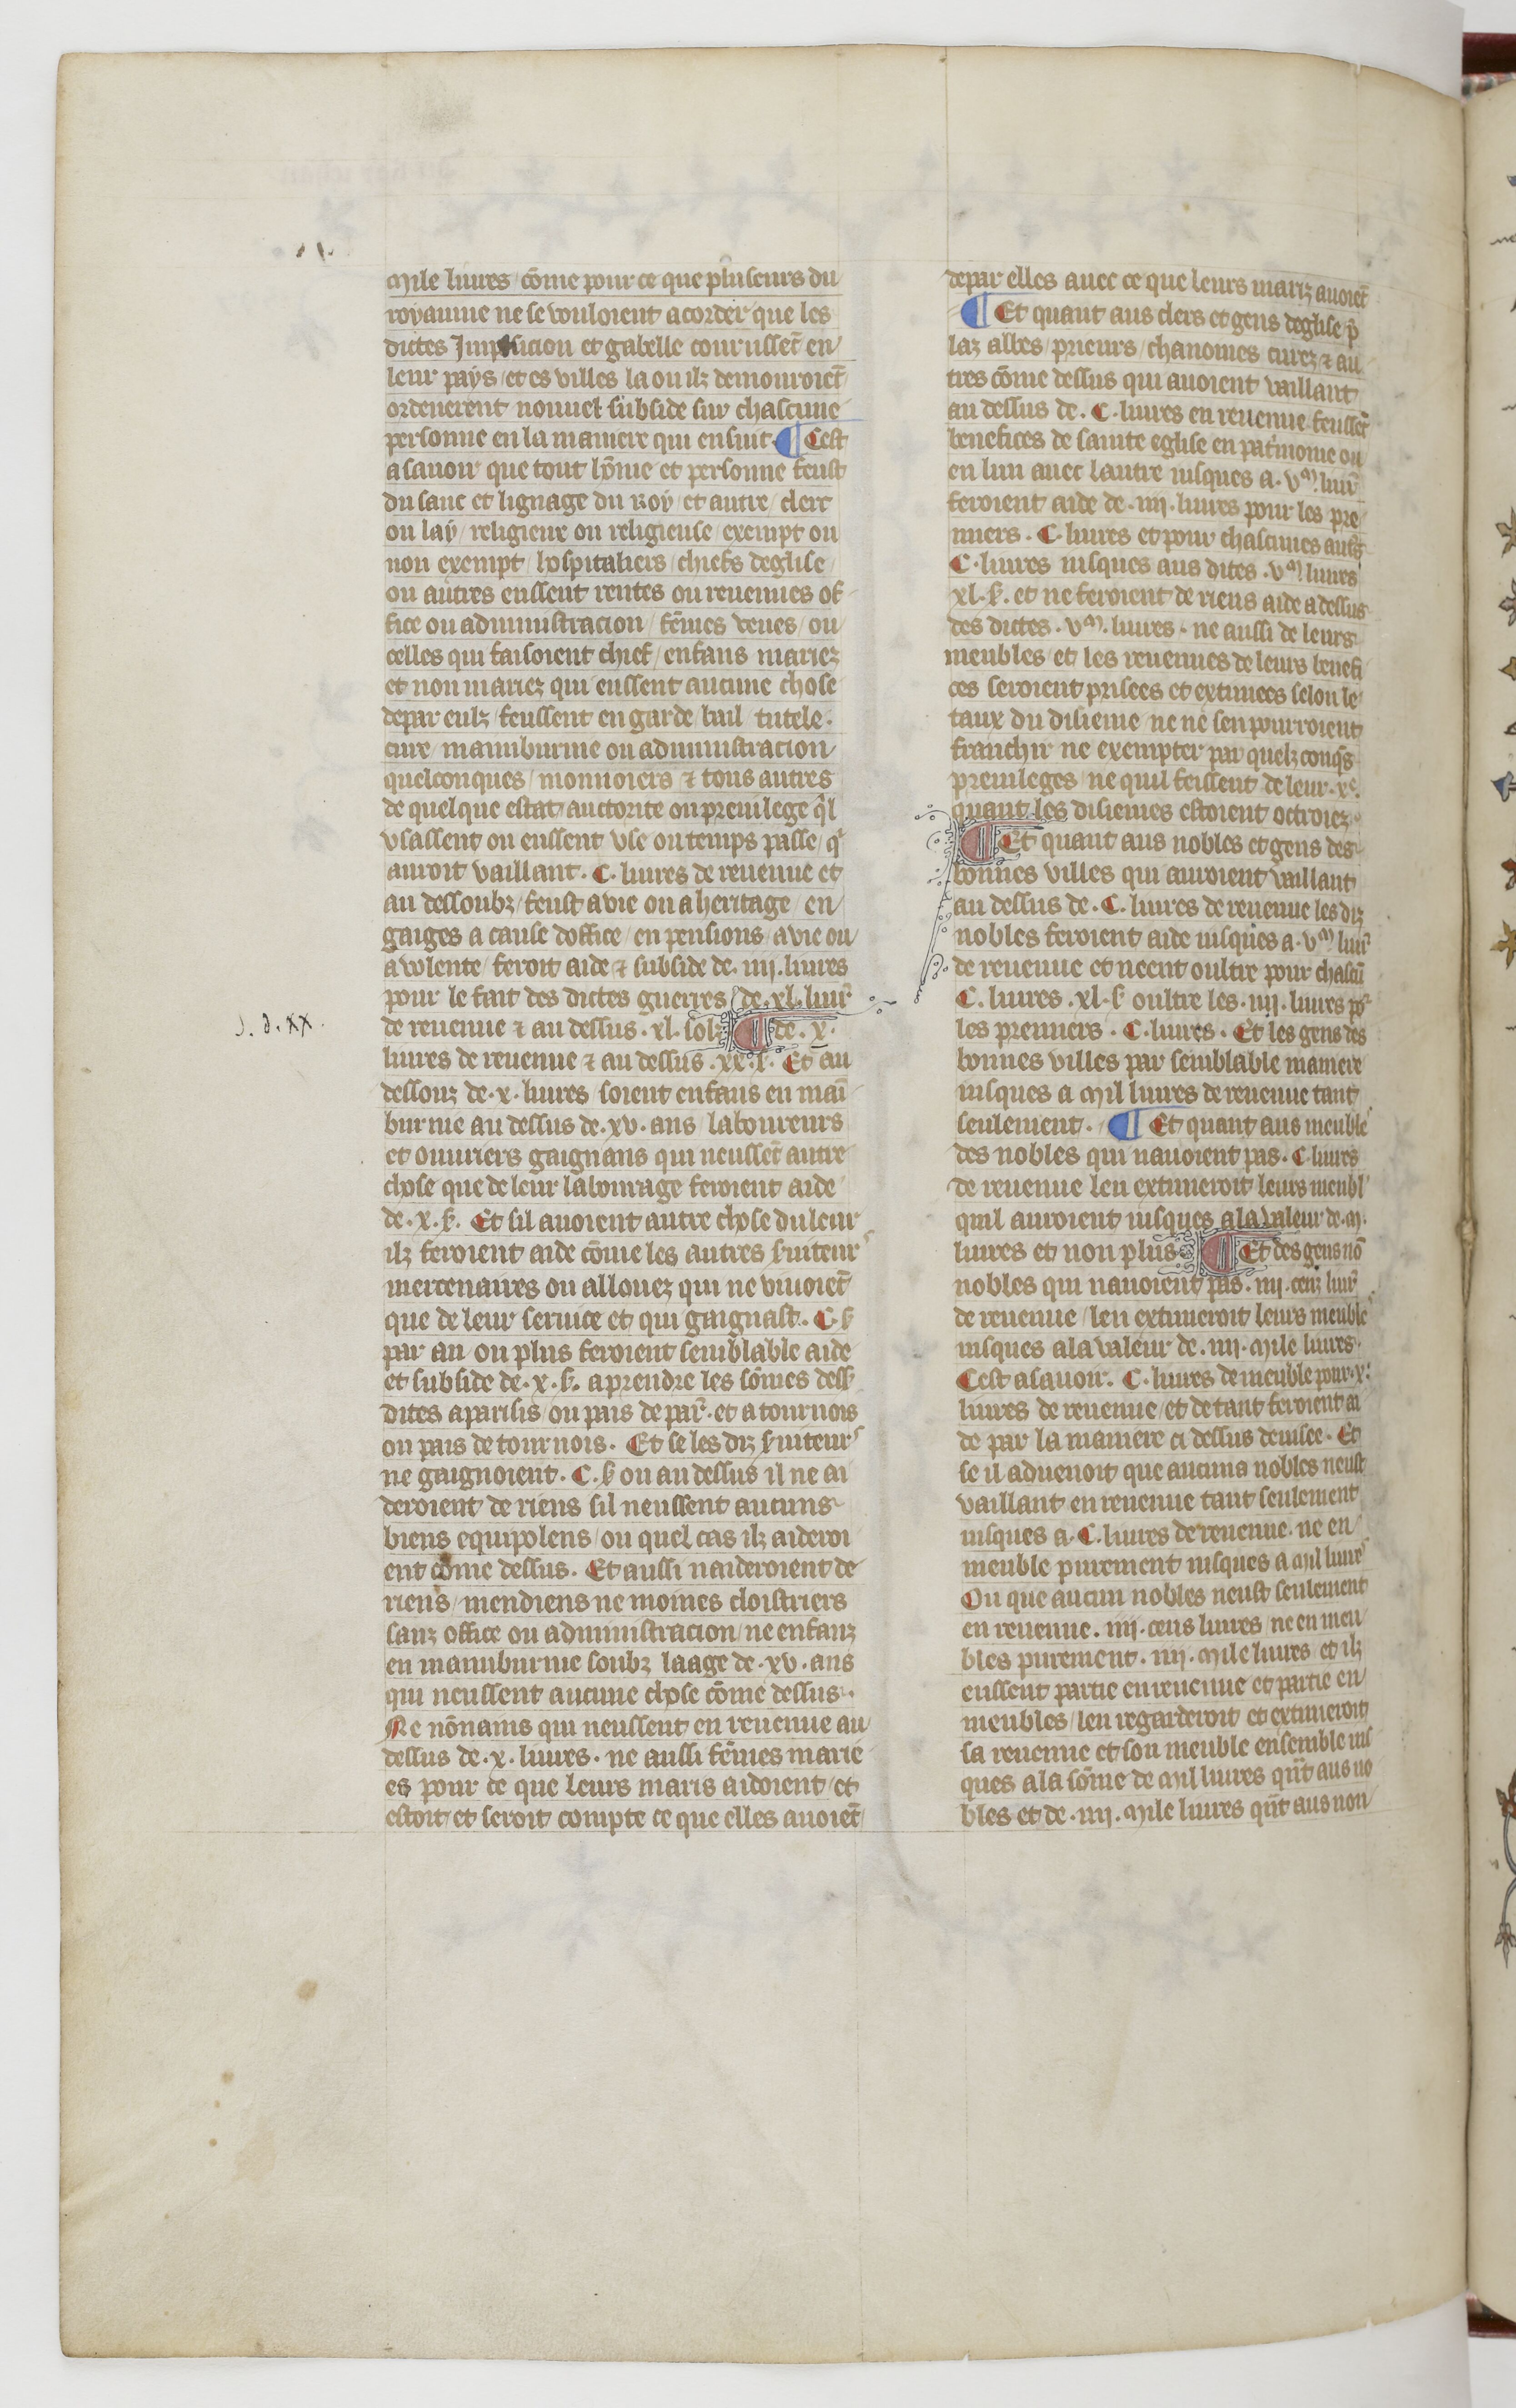 Mile liures / cōme pour ce que pluseurs du
royaume ne se vouloient acorder que les
dictes Imposicion et gabelle courussēt en
leur pays / et es villes la ou ilz demouroiēt
ordenerent nouuel subside sur chascune
personne en la maniere qui ensuit. ¶ Cest
a sauoir que tout hōme et personne feust
du sanc et lignage du Roy / et autre / clerc
ou lay / religieux ou religieuse / exempt ou
non exempt / hospitaliers / chiefs deglise /
ou autres eussent rentes ou reuenues of
fice ou administracion / fēmes veues / ou
celles qui faisoient chief / enfans mariez
et non mariez qui eussent aucune chose
depar eulz / feussent en garde / bail / tutele .
cure / mainburnie ou administracion
quelconques / monnoiers & tous autres
de quelque estat / auctorite ou preuilege q̄l
vsassent ou eussent vse ou temps passe / qⁱ
auroit vaillant . C . liures de reuenue et
au dessoubz / feust a vie ou a heritage / en
gaiges a cause doffice / en pensions / a vie ou
a volente / feroit aide & subside de . iiij . liures
pour le fait des dictes guerres / de . xl . liur̄
de reuenue & au dessus . xl . solz ¶ de . x .
J. d. xx.
liures de reuenue & au dessus . xx . s̄ . Et au
dessouz de . x . liures / soient enfans en maī
burnie au dessus de . xv . ans / laboureurs
et ouuriers gaignans qui neussēt autre
chose que de leur labourage feroient aide
de . x . s̄ . Et sil auoient autre chose du leur
ilz feroient aide cōme les autres s̄uiteurˢ
mercenaires ou allouez qui ne viuoiēt
que de leur seruice et qui gaignast . C . s̄
par an ou plus feroient semblable aide
et subside de . x . s̄ . a prendre les sōmes dess̄
dites a parisis / ou pais de par̄ . et a tournois
ou pais de tournois . Et se les diz s̄uiteurˢ
ne gaignoient . C . s̄ ou au dessus il ne ai
deroient de riens sil neussent aucuns
biens equipolens / ou quel cas ilz aideroi
ent cōme dessus . Et aussi naideroient de
riens / mendiens ne moines cloistriers
sanz office ou administracion / ne enfanz
en mainburnie soubz laage de . xv . ans
qui neussent aucune chose cōme dessus .
Ne nōnains qui neussent en reuenue au
dessus de . x . liures . ne aussi fēmes marie
es pour ce que leurs maris aidoient / et
estoit / et seroit compte ce que elles auoiēt
depar elles auec ce que leurs mariz auoiēt
¶ Et quant aus clers et gens deglise p̄
laz abbes / prieurs / chanoines curez & au
tres cōme dessus qui auoient vaillant
au dessus de . C . liures en reuenue feussēt
benefices de sainte eglise en patⁱmoine ou
en lun auec lautre iusques a . vᵐ liur̄
feroient aide de . iiij . liures pour les pre
miers . C . liures et pour chascunes autʳs
C . liures iusques aus dites . vᵐ liures
xl . s̄ . et ne feroient de riens aide a dessus
des dictes . vᵐ . liures . ne aussi de leurs
meubles / et les reuenues de leurs benefi
ces seroient prisees et extimees selon le
taux du disieme ne ne sen pourroient
franchir ne exempter par quelzconq̄s
preuileges / ne quil feissent de leur . xᵉ .
quant les disiemes estoient octroiez .
¶ Et quant aus nobles et gens des
bonnes villes qui auroient vaillant
au dessus de . C . liures de reuenue les diz
nobles feroient aide iusques a . vᵐ liur̄
de reuenue et neent oultre pour chascū
C . liures . xl . s̄ oultre les . iiij . liures poʳ
les premiers . C . liures . Et les gens des
bonnes villes par semblable maniere
iusques a Mil liures de reuenue tant
seulement . ¶ Et quant aus meubleˢ
des nobles qui nauoient pas . C . liures
de reuenue len extimeroit leurs meublˢ
quil auroient iusques a la valeur de . M .
liures et non plus ¶ Et des gens nō
nobles qui nauoient pas . iiij . cenz liur̄
de reuenue / len extimeroit leurs meubleˢ
iusques a la valeur de . iiij . Mile liures .
Cest a sauoir . C . liures de meuble pour . x .
liures de reuenue / et de tant feroient ai
de par la maniere ci dessus deuisee . Et
se il aduenoit que aucuns nobles neust
vaillant en reuenue tant seulement
iusques a . C . liures de reuenue . ne en
meuble purement iusques a Mil liureˢ
Ou que aucun nobles neust seulement
en reuenue . iiij . cens liures / ne en meu
bles purement . iiij . Mile liures et ilz
eussent partie en reuenue et partie en
meubles / len regarderoit et extimeroit
sa reuenue et son meuble ensemble ius
ques a la sōme de Mil liures qn̄t aus no
bles et de . iiij . Mile liures qn̄t aus non